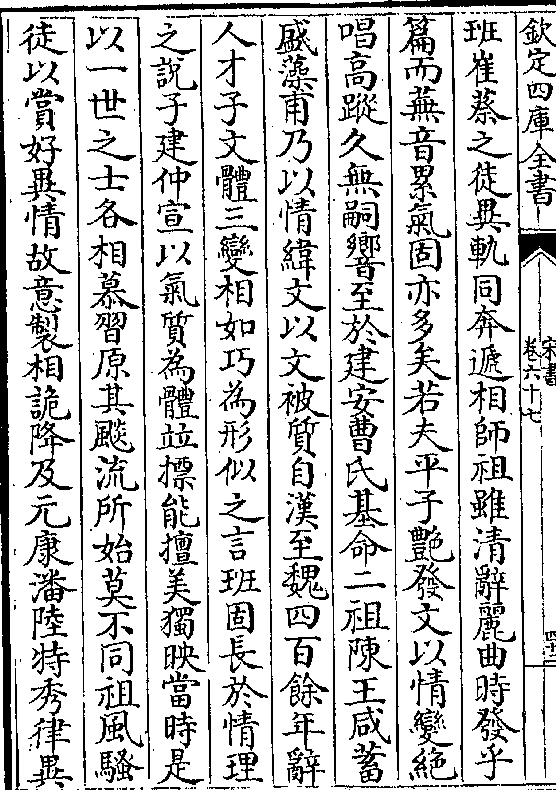 欽定四庫全書
宋書
卷六十七
四十二
班崔蔡之徒異軌同奔遞相師祖雖清辭麗曲時發乎
篇而蕪音累氣固亦多矣若夫平子艷發文以情變絕
唱髙蹤久無嗣響至於建安曹氏基命二祖陳王咸蓄
盛藻甫乃以情緯文以文被質自漢至魏四百餘年辭
人才子文體三變相如巧為形似之言班固長於情理
之說子建仲宣以氣質為體並摽能擅美獨映當時是
以一世之士各相慕習原其颷流所始莫不同祖風騷
徒以賞好異情故意製相詭降及元康潘陸特秀律異